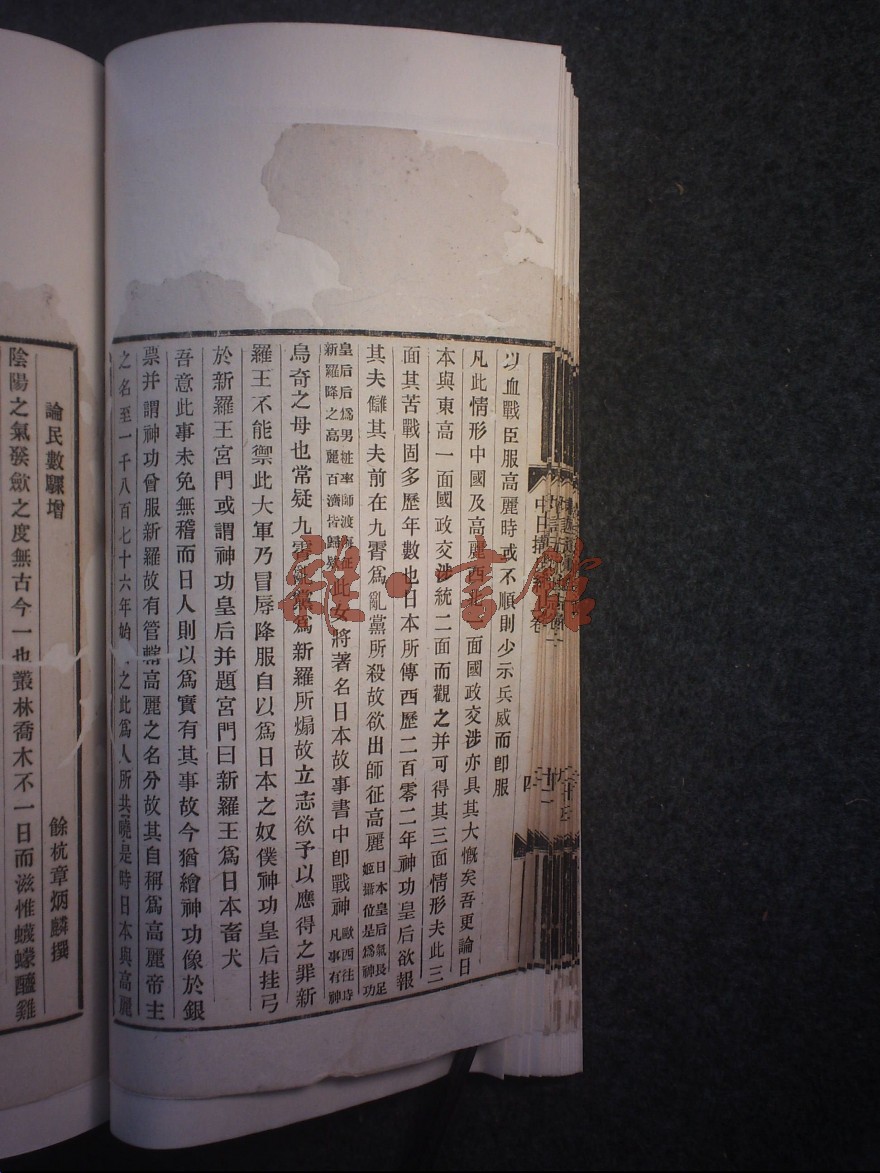 以血戰臣服高麗時或不順則少示兵威而卽服
凡此情形中國及高麗西北 面國政交涉亦具其大慨矣吾更論日
本與東高一面國政交涉統二面而觀之并可得其三面情形夫此三
面其苦戰固多歷年數也日本所傳西歷二百零二年神功皇后欲報
其夫讎其夫前在九霄爲亂黨所殺故欲出師征高麗
日本皇后氣長足
姬攝位是爲神功
皇后后爲男粧率師渡海征
新羅降之高麗百濟皆歸
此女將著名日本故事書中卽戰神
歐西往時
凡事有神
烏奇之母也常疑九霄亂黨爲新羅所煽故立志欲予以應得之罪新
羅王不能禦此大軍乃冒辱降服自以爲日本之奴僕神功皇后挂弓
於新羅王宮門或謂神功皇后并題宮門曰新羅王爲日本畜犬
吾意此事未免無稽而日人則以爲實有其事故今猶繪神功像於銀
票并謂神功曾服新羅故有管轄高麗之名分故其自稱爲高麗帝主
之名至一千八百七十六年始 之此爲人所共曉是時日本與高麗
論民數驟增
餘杭章炳麟撰
陰陽之氣發斂之度無古今一也叢林喬木不一日而滋惟蠛蠓醯雞
雜·書館